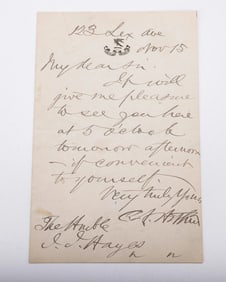 123 Lex ave
Nov 15
My dear sir.
It will
give me pleasure
to see you here
at 5 o'clock
tomorrow afternoon
- if convenient
to yourself.
Very truly yours
C A Arthur
The Honble
I. I. Hayes